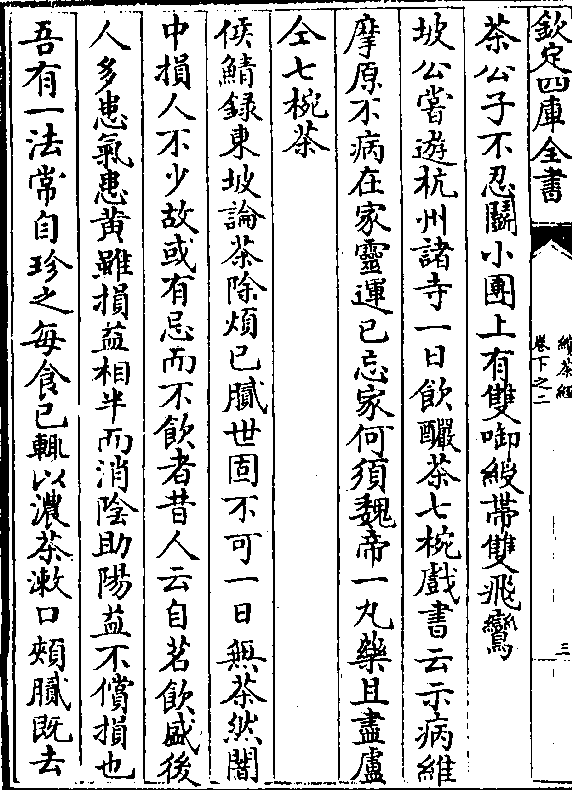 欽定四庫全書
續茶經
卷下之二
三
茶公子不忍鬭小團上有雙啣綬帶雙飛鸞
坡公嘗遊杭州諸寺一日飲釅茶七椀戲書云示病維
摩原不病在家靈運已忘家何須魏帝一丸藥且盡盧
仝七椀茶
侯鯖録東坡論茶除煩已膩世固不可一日無茶然闇
中損人不少故或有忌而不飲者昔人云自茗飲盛後
人多患氣患黄雖損益相半而消陰助陽益不償損也
吾有一法常自珍之每食已輒以濃茶漱口頰膩既去